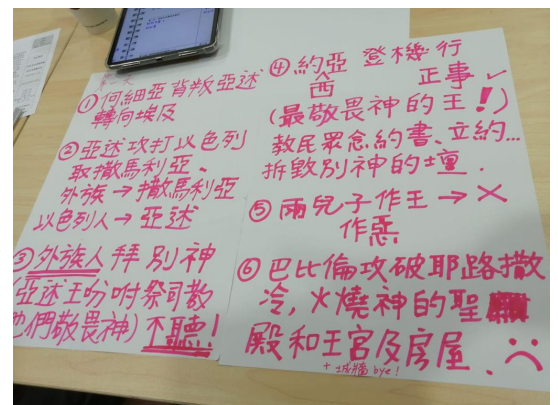 ①何細亞背叛亞述
轉向埃及
②亞述攻打以色列
取撒馬利亞、
外族→撒馬利亞
以色列人→亞述
③外族人拜別神
(亞述王吩咐祭司教
他們敬畏神)不聽!
④約西亞登機行
正事✓
(最敬畏神的王!)
教民眾念約書、立約...
拆毀別神的壇.
⑤兩兒子作王→×
作惡
⑥巴比倫攻破耶路撒
冷,火燒神的聖
殿和王宮及房屋.
+城牆 bye!